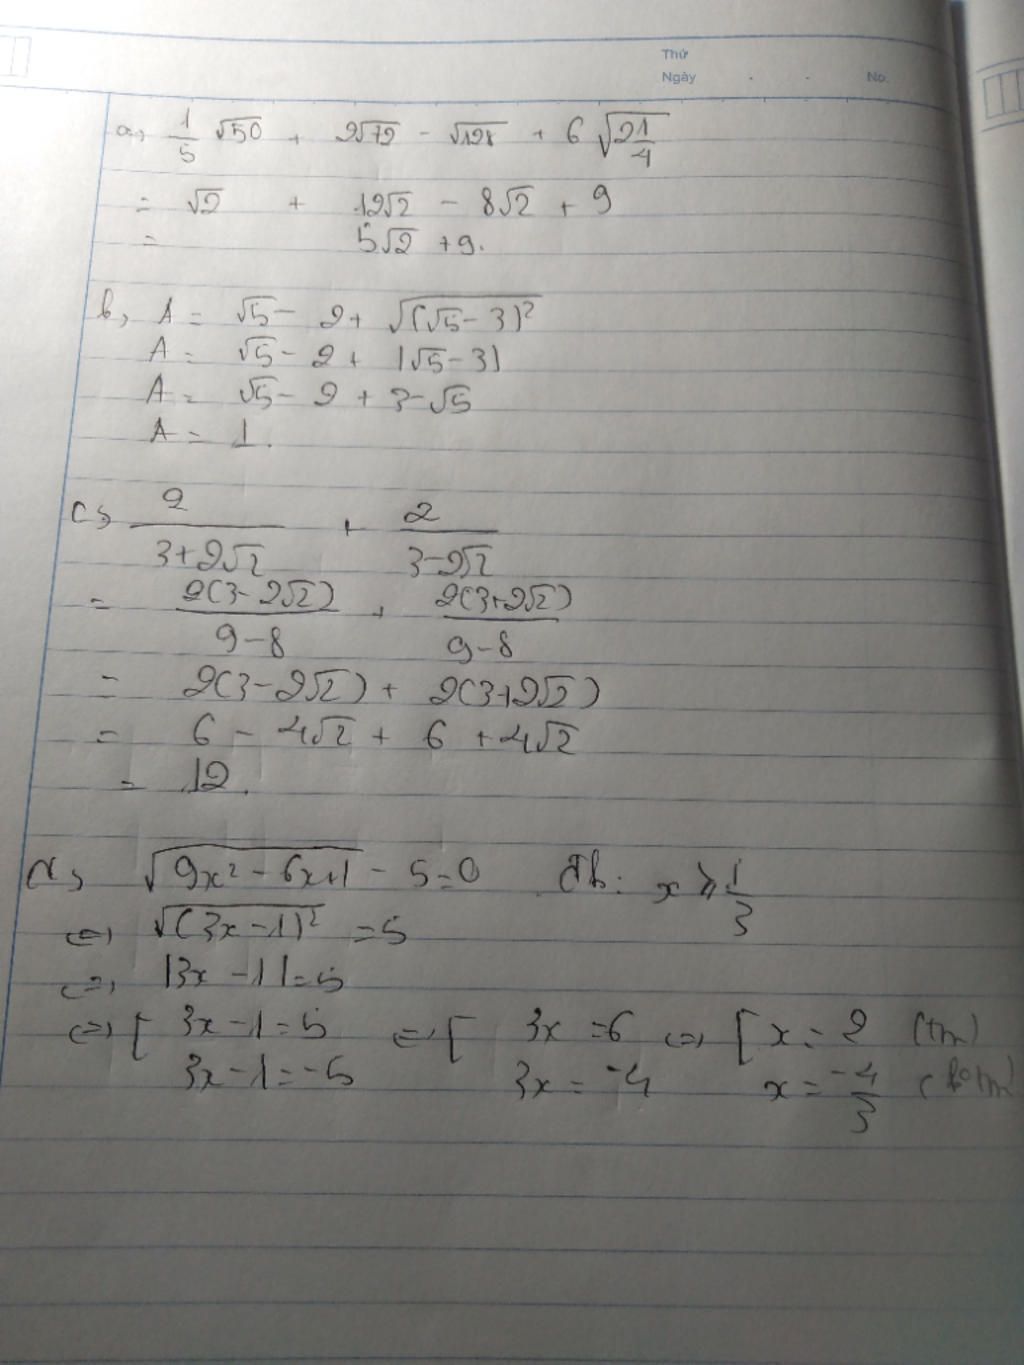 Thứ
Ngày . . No.
a, 1/5 √50 + 2√72 - √128 + 6 √(2 1/4)
= √2 + 12√2 - 8√2 + 9
= 5√2 + 9.
b, A = √5 - 2 + √((√5 - 3)²)
A = √5 - 2 + |√5 - 3|
A = √5 - 2 + 3 - √5
A = 1.
c, 2/(3+2√2) + 2/(3-2√2)
= 2(3-2√2)/(9-8) + 2(3+2√2)/(9-8)
= 2(3-2√2) + 2(3+2√2)
= 6 - 4√2 + 6 + 4√2
= 12.
d, √(9x² - 6x+1) - 5=0 Đk: x ⩾ 1/3
⇔ √((3x-1)²) = 5
⇔ |3x - 1| = 5
⇔ [ 3x - 1 = 5 ⇔ [ 3x = 6 ⇔ [ x = 2 (tm)
3x - 1 = -5 3x = -4 x = -4/3 (kotm)